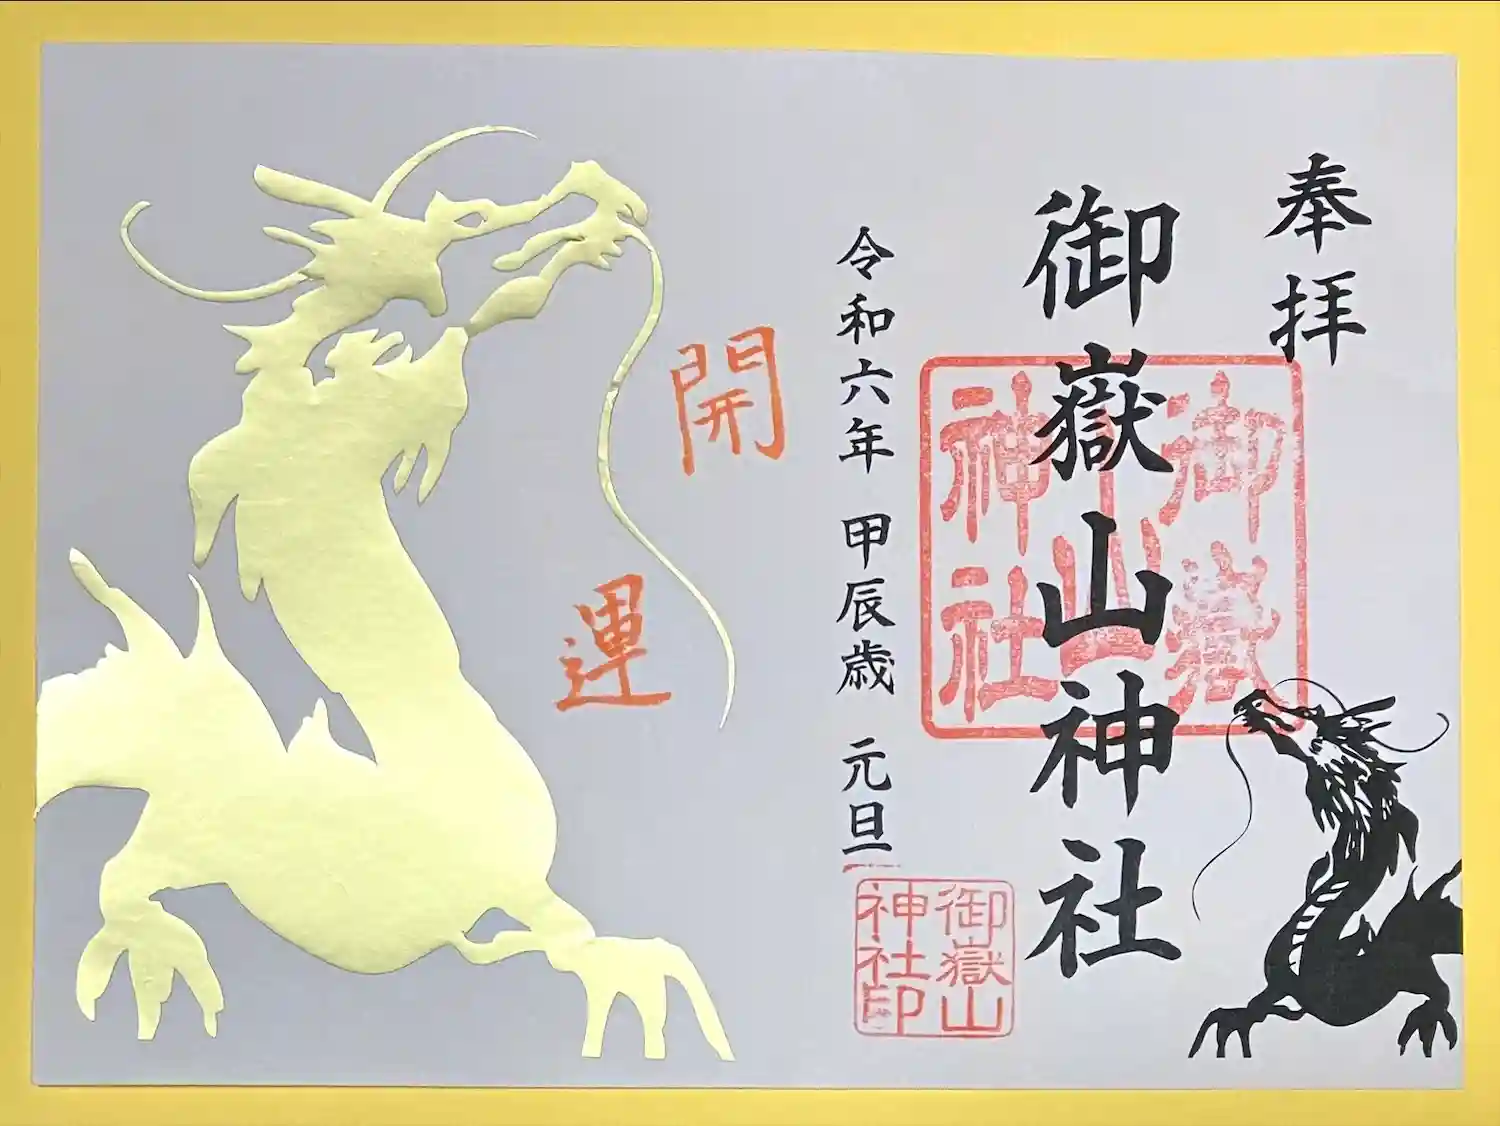 奉拝
御嶽山神社
御嶽山神社
令和六年 甲辰歳 元旦
御嶽山神社印
開運